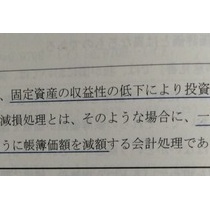 、固定資産の収益性の低下により投資
減損処理とは、そのような場合に、
うに帳簿価額を減額する会計処理であ